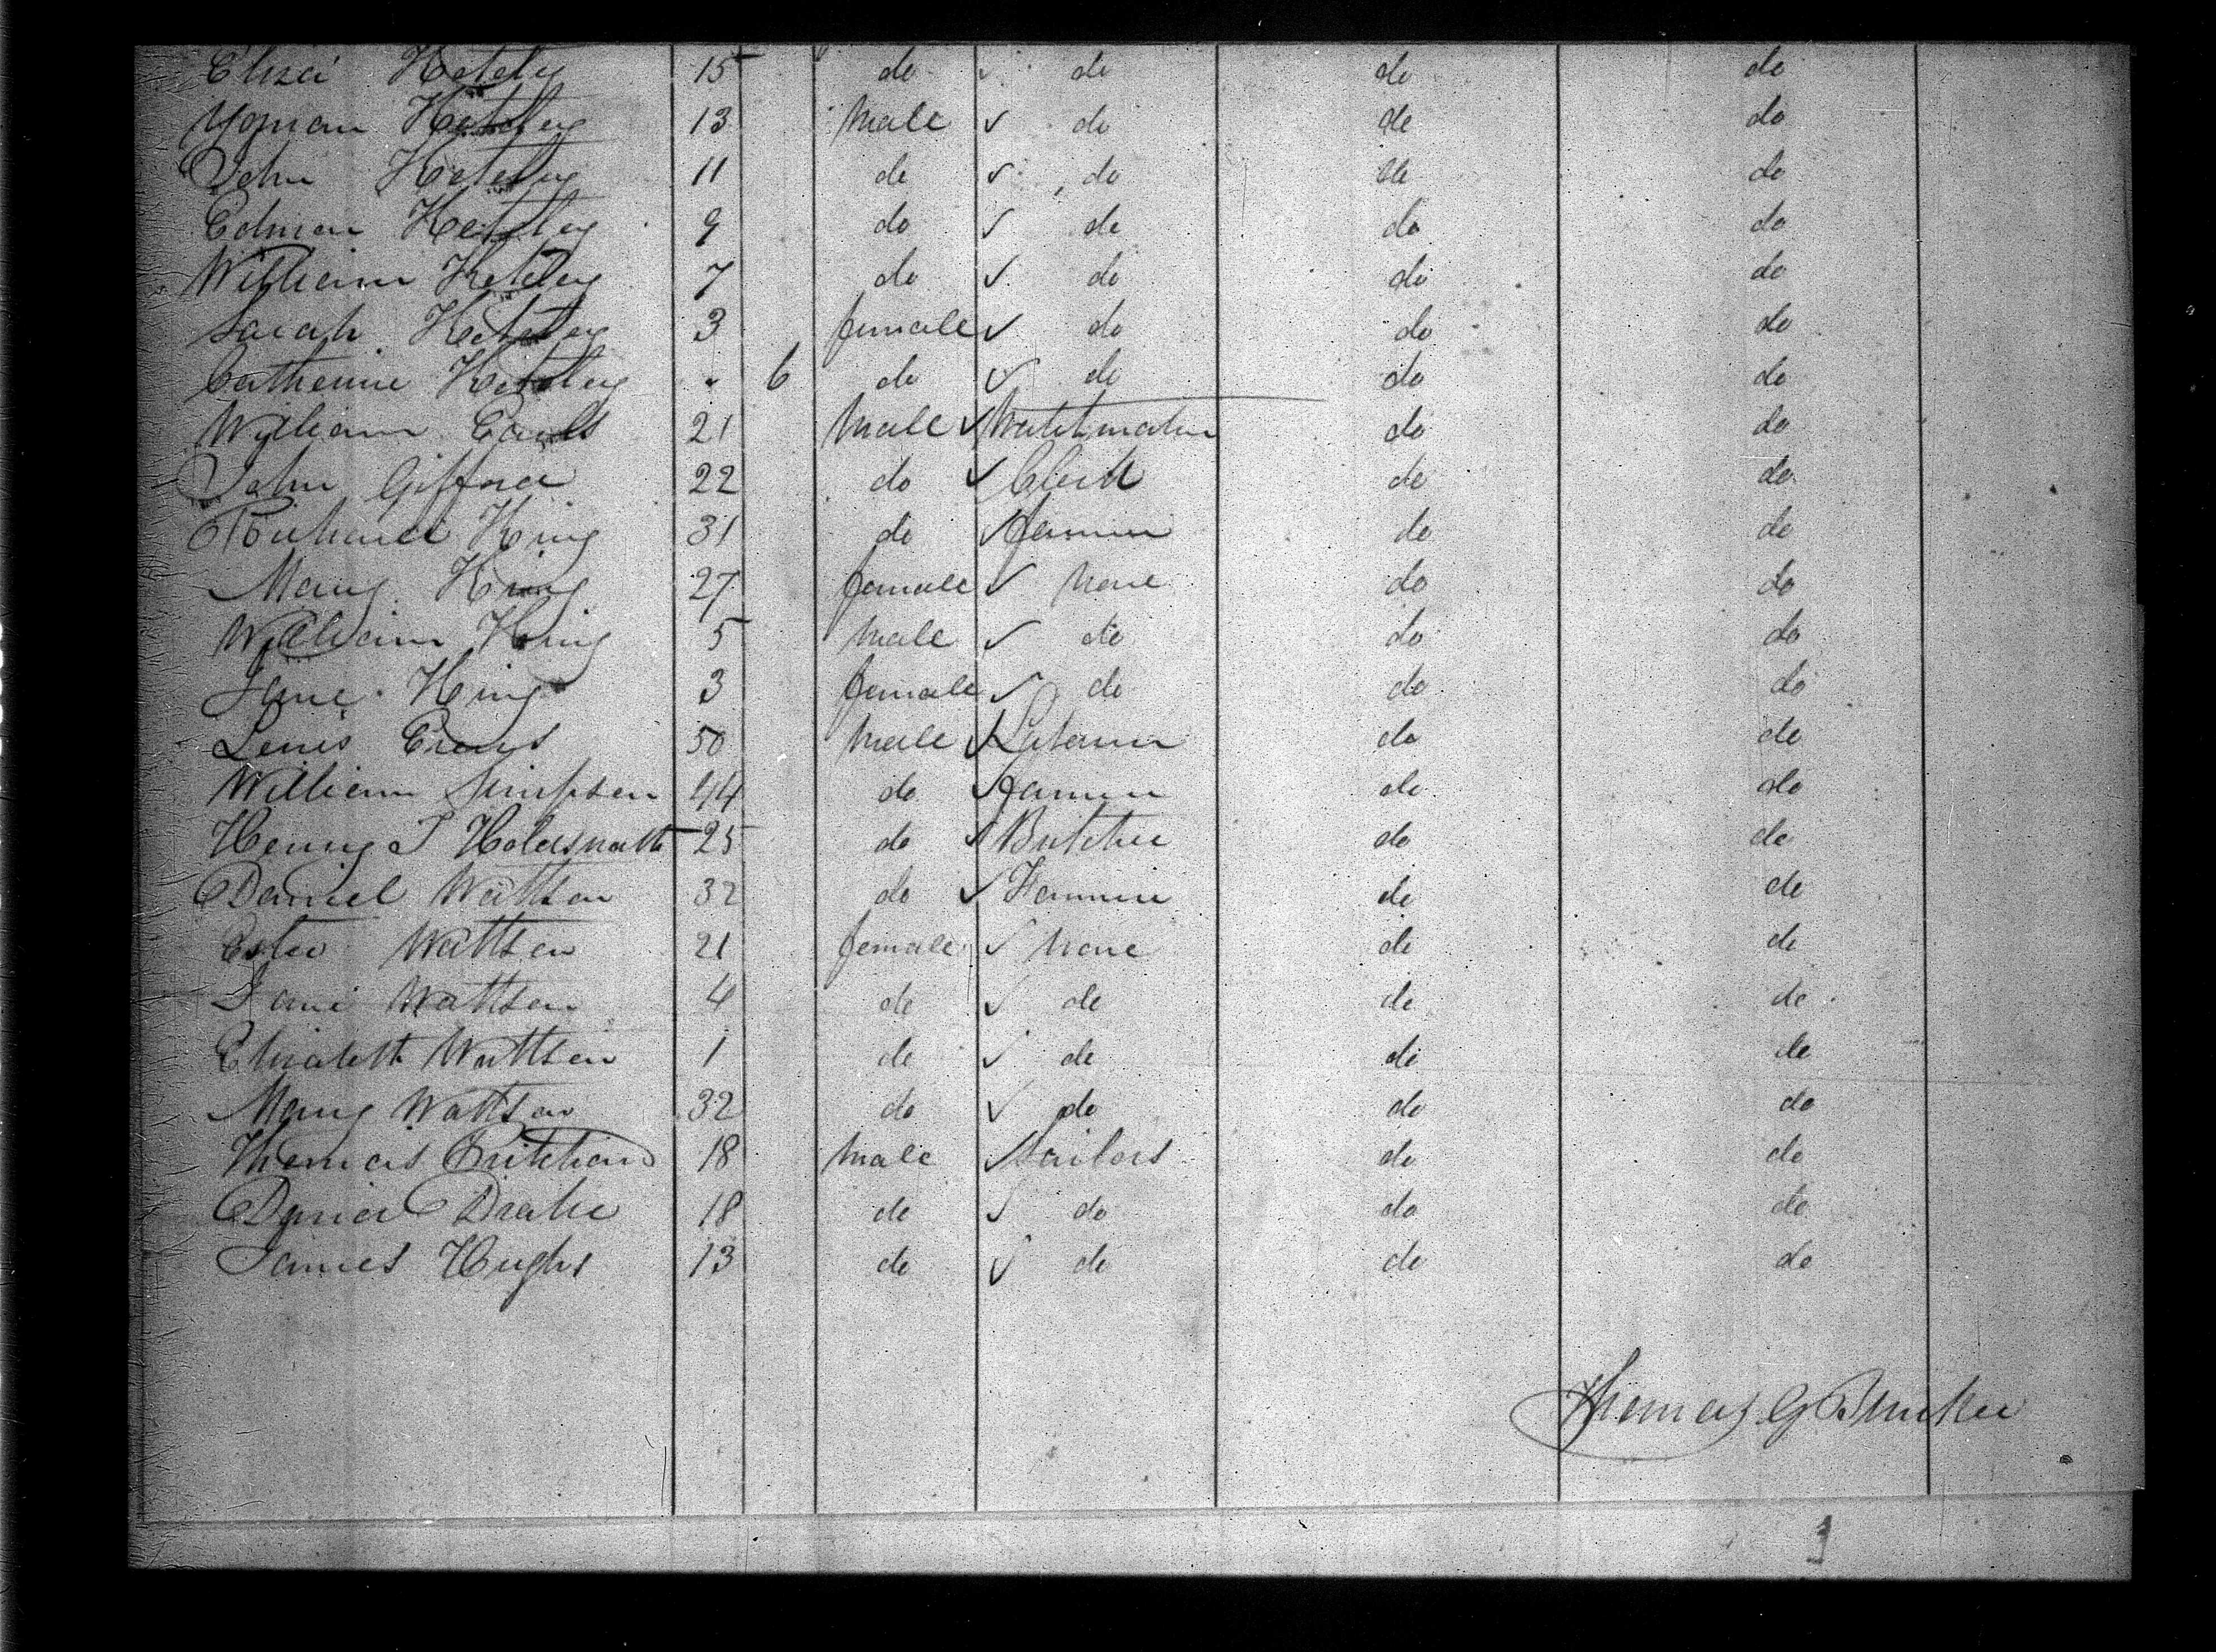 Eliza Hateley 15 do do do do
13 male do do do
John Hateley 11 do do do do
Edman Hateley 9 do do do do
William Hateley 7 do do do do
Sarah Hateley 3 female do do do
Catherine Hateley 6 do do do do
William 21 male Watchmaker do do
John Gifford 22 do Clerk do do
Richard King 31 do Farmer do do
Mary King 27 female None do do
William King 5 male do do do
Jane King 3 female do do do
Lewis 50 male do do
William Simpson 44 do Farmer do do
Henry J 25 do Butcher do do
Daniel Wattson 32 do Farmer do do
Ester Wattson 21 female None do do
Jane Wattson 4 do do do do
Elizabeth Wattson 1 do do do do
Mary Wattson 32 do do do do
Thomas 18 male Sailors do do
Drake 18 do do do do
James Hughs 13 do do do do
Thomas G